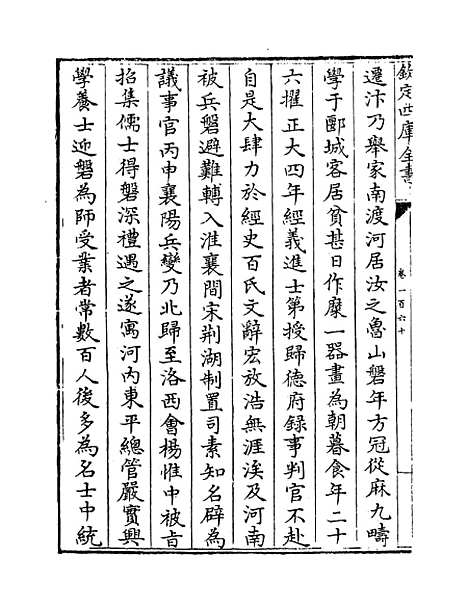 欽定四庫全書
卷一百六十
遷汴乃舉家南渡河居汝之魯山磐年方冠從麻九疇
學于郾城客居貧甚日作糜一器畫為朝暮食年二十
六擢正大四年經義進士第授歸德府錄事判官不赴
自是大肆力於經史百氏文辭宏放浩無涯涘及河南
被兵磐避難轉入淮襄間宋荆湖制置司素知名辟為
議事官丙申襄陽兵變乃北歸至洛西會楊惟中被旨
招集儒士得磐深禮遇之遂寓河內東平總管嚴實興
學養士迎磐為師受業者常數百人後多為名士中統